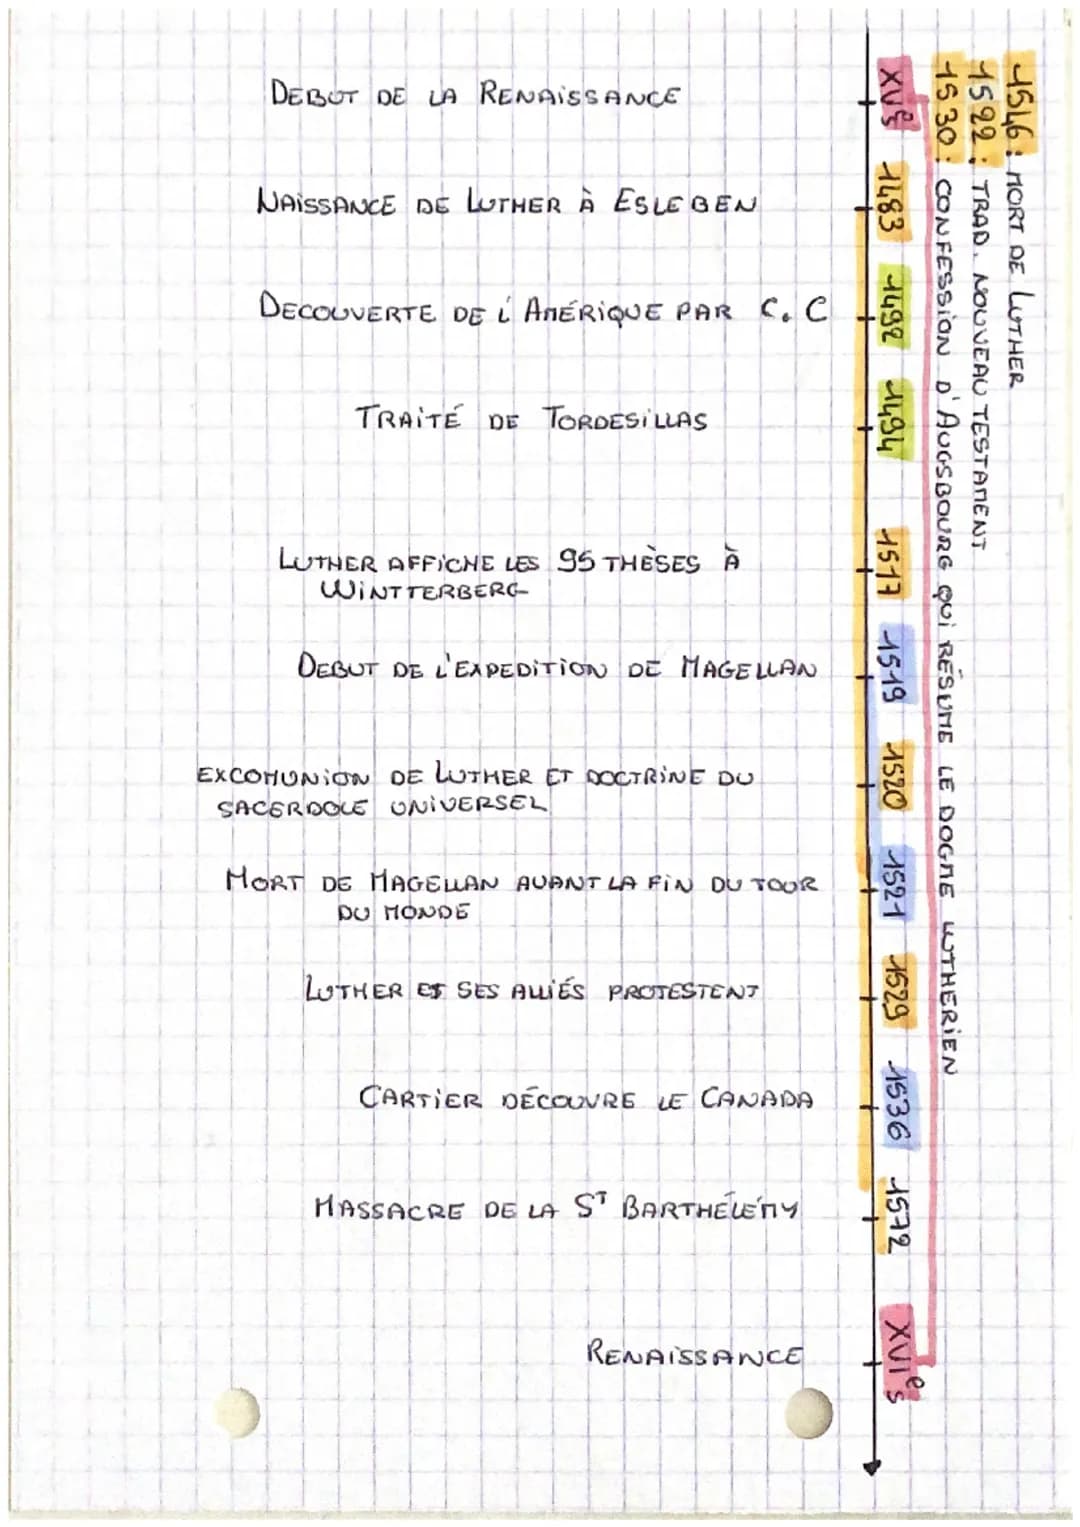 1546 : MORT DE LUTHER
1522 : TRAD. NOUVEAU TESTAMENT
1530 : CONFESSION D'AUGSBOURG QUI RÉSUME LE DOGME LUTHERIEN
XVe s
DEBUT DE LA RENAISSANCE
1483
NAISSANCE DE LUTHER À ESLEBEN
1492
DECOUVERTE DE L'AMÉRIQUE PAR C. C
1494
TRAITÉ DE TORDESILLAS
1517
LUTHER AFFICHE LES 95 THÈSES À
WINTTERBERG
1519
DEBUT DE L'EXPEDITION DE MAGELLAN
1520
EXCOMUNION DE LUTHER ET DOCTRINE DU
SACERDOLE UNIVERSEL
1521
MORT DE MAGELLAN AVANT LA FIN DU TOUR
DU MONDE
1529
LUTHER ET SES ALLIÉS PROTESTENT
1536
CARTIER DÉCOUVRE LE CANADA
1572
MASSACRE DE LA ST BARTHÉLÉMY
XVIe s
RENAISSANCE